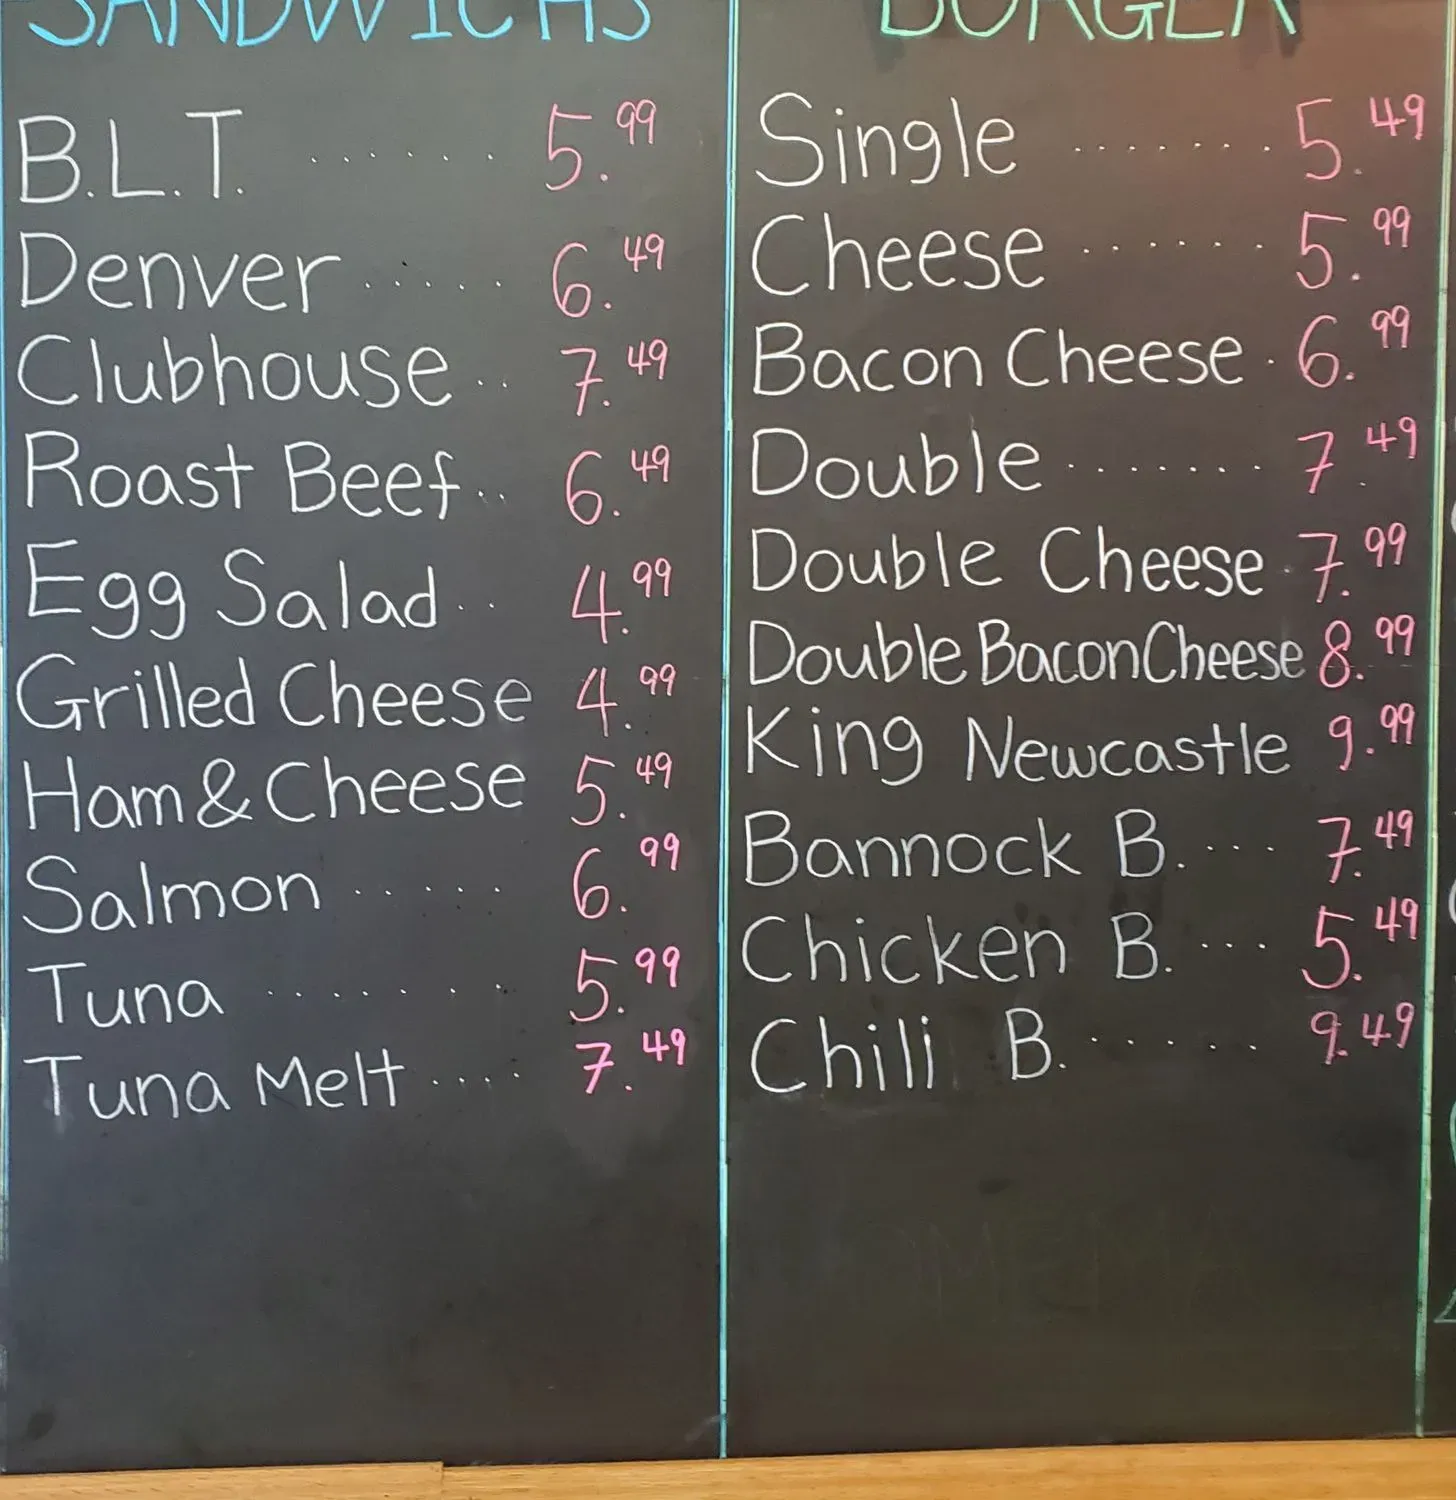 SANDWICHS
B.L.T. ....... 5.99
Denver ..... 6.49
Clubhouse .. 7.49
Roast Beef .. 6.49
Egg Salad .. 4.99
Grilled Cheese 4.99
Ham & Cheese 5.49
Salmon ..... 6.99
Tuna ....... 5.99
Tuna Melt .... 7.49
BURGER
Single ....... 5.49
Cheese ....... 5.99
Bacon Cheese . 6.99
Double ....... 7.49
Double Cheese . 7.99
Double Bacon Cheese 8.99
King Newcastle 9.99
Bannock B. ... 7.49
Chicken B. ... 5.49
Chili B. ...... 9.49